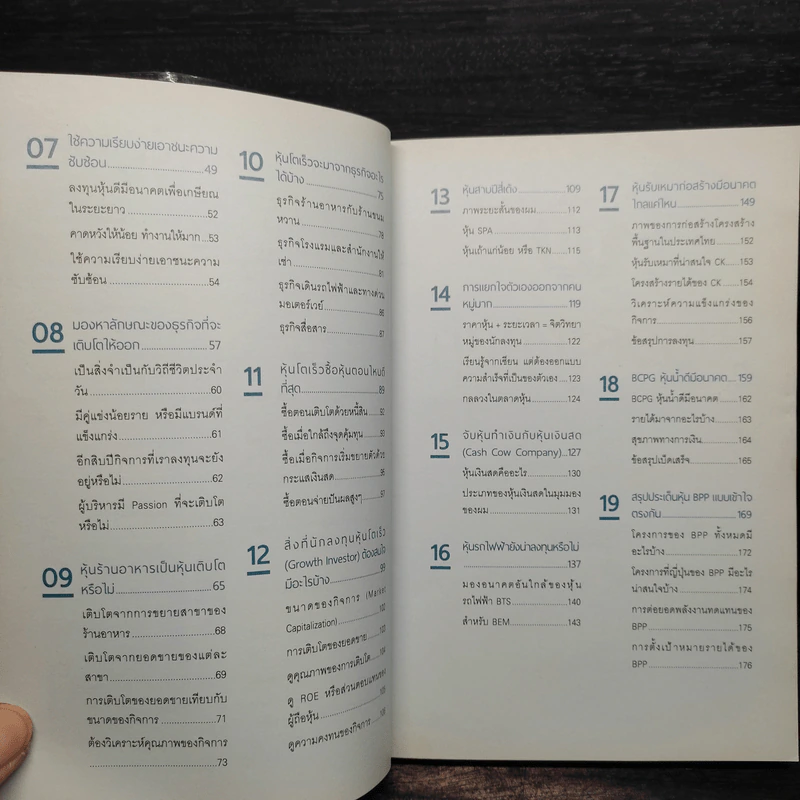 07
ใช้ความเรียบง่ายเอาชนะความ
ซับซ้อน.....................49
ลงทุนหุ้นดีมีอนาคตเพื่อเกษียณ
ในระยะยาว.....................52
คาดหวังให้น้อย ทำงานให้มาก...53
ใช้ความเรียบง่ายเอาชนะความ
ซับซ้อน.....................54
08
มองหาลักษณะของธุรกิจที่จะ
เติบโตให้ออก.....................57
เป็นสิ่งจำเป็นกับวิถีชีวิตประจำ
วัน.....................60
มีคู่แข่งน้อยราย หรือมีแบรนด์ที่
แข็งแกร่ง.....................61
อีกสิบปีกิจการที่เราลงทุนจะยัง
อยู่หรือไม่.....................62
ผู้บริหารมี Passion ที่จะเติบโต
หรือไม่.....................63
09
หุ้นร้านอาหารเป็นหุ้นเติบโต
หรือไม่.....................65
เติบโตจากการขยายสาขาของ
ร้านอาหาร.....................68
เติบโตจากยอดขายของแต่ละ
สาขา.....................69
การเติบโตของยอดขายเทียบกับ
ขนาดของกิจการ.....................71
ต้องวิเคราะห์คุณภาพของกิจการ
.....................73
10
หุ้นโตเร็วจะมาจากธุรกิจอะไร
ได้บ้าง.....................75
ธุรกิจร้านอาหารกับร้านขนม
หวาน.....................78
ธุรกิจโรงแรมและสำนักงานให้
เช่า.....................81
ธุรกิจเดินรถไฟฟ้าและทางด่วน
มอเตอร์เวย์.....................86
ธุรกิจสื่อสาร.....................87
11
หุ้นโตเร็วซื้อหุ้นตอนไหนดี
ที่สุด.....................89
ซื้อตอนเติบโตด้วยหนี้สิน.....90
ซื้อเมื่อใกล้ถึงจุดคุ้มทุน.....
ซื้อเมื่อกิจการเริ่มขยายตัวด้วย
กระแสเงินสด.....................96
ซื้อตอนจ่ายปันผลสูงๆ.....97
12
สิ่งที่นักลงทุนหุ้นโตเร็ว
(Growth Investor) ต้องสนใจ
มีอะไรบ้าง.....................99
ขนาดของกิจการ (Market
Capitalization).....................102
การเติบโตของยอดขาย.....103
ดูคุณภาพของการเติบโต.....104
ดู ROE หรือส่วนตอบแทนของ
ผู้ถือหุ้น.....................105
ดูความคงทนของกิจการ.....
13
หุ้นสามมิสี่เด้ง.....................109
ภาพระยะสั้นของผม.....................112
หุ้น SPA.....................113
หุ้นเถ้าแก่น้อย หรือ TKN.....115
14
การแยกใจตัวเองออกจากคน
หมู่มาก.....................119
ราคาหุ้น + ระยะเวลา = จิตวิทยา
หมู่ของนักลงทุน.....................122
เรียนรู้จากเซียน แต่ต้องออกแบบ
ความสำเร็จที่เป็นของตัวเอง...123
กลลวงในตลาดหุ้น.....................124
15
จับหุ้นทำเงินกับหุ้นเงินสด
(Cash Cow Company)...127
หุ้นเงินสดคืออะไร.....................130
ประเภทของหุ้นเงินสดในมุมมอง
ของผม.....................131
16
หุ้นรถไฟฟ้ายังน่าลงทุนหรือไม่
.....................137
มองอนาคตอันใกล้ของหุ้น
รถไฟฟ้า BTS.....................140
สำหรับ BEM.....................143
17
หุ้นรับเหมาก่อสร้างมีอนาคต
ไกลแค่ไหน.....................149
ภาพของการก่อสร้างโครงสร้าง
พื้นฐานในประเทศไทย.....152
หุ้นรับเหมาที่น่าสนใจ CK.....153
โครงสร้างรายได้ของ CK.....154
วิเคราะห์ความแข็งแกร่งของ
กิจการ.....................156
ข้อสรุปการลงทุน.....................157
18
BCPG หุ้นน้ำดีมีอนาคต.....159
BCPG หุ้นน้ำดีมีอนาคต.....162
รายได้มาจากอะไรบ้าง.....163
สุขภาพทางการเงิน.....................164
ข้อสรุปเบ็ดเสร็จ.....................165
19
สรุปประเด็นหุ้น BPP แบบเข้าใจ
ตรงกัน.....................169
โครงการของ BPP ทั้งหมดมี
อะไรบ้าง.....................172
โครงการที่ญี่ปุ่นของ BPP มีอะไร
น่าสนใจบ้าง.....................174
การต่อยอดพลังงานทดแทนของ
BPP.....................175
การตั้งเป้าหมายรายได้ของ
BPP.....................176